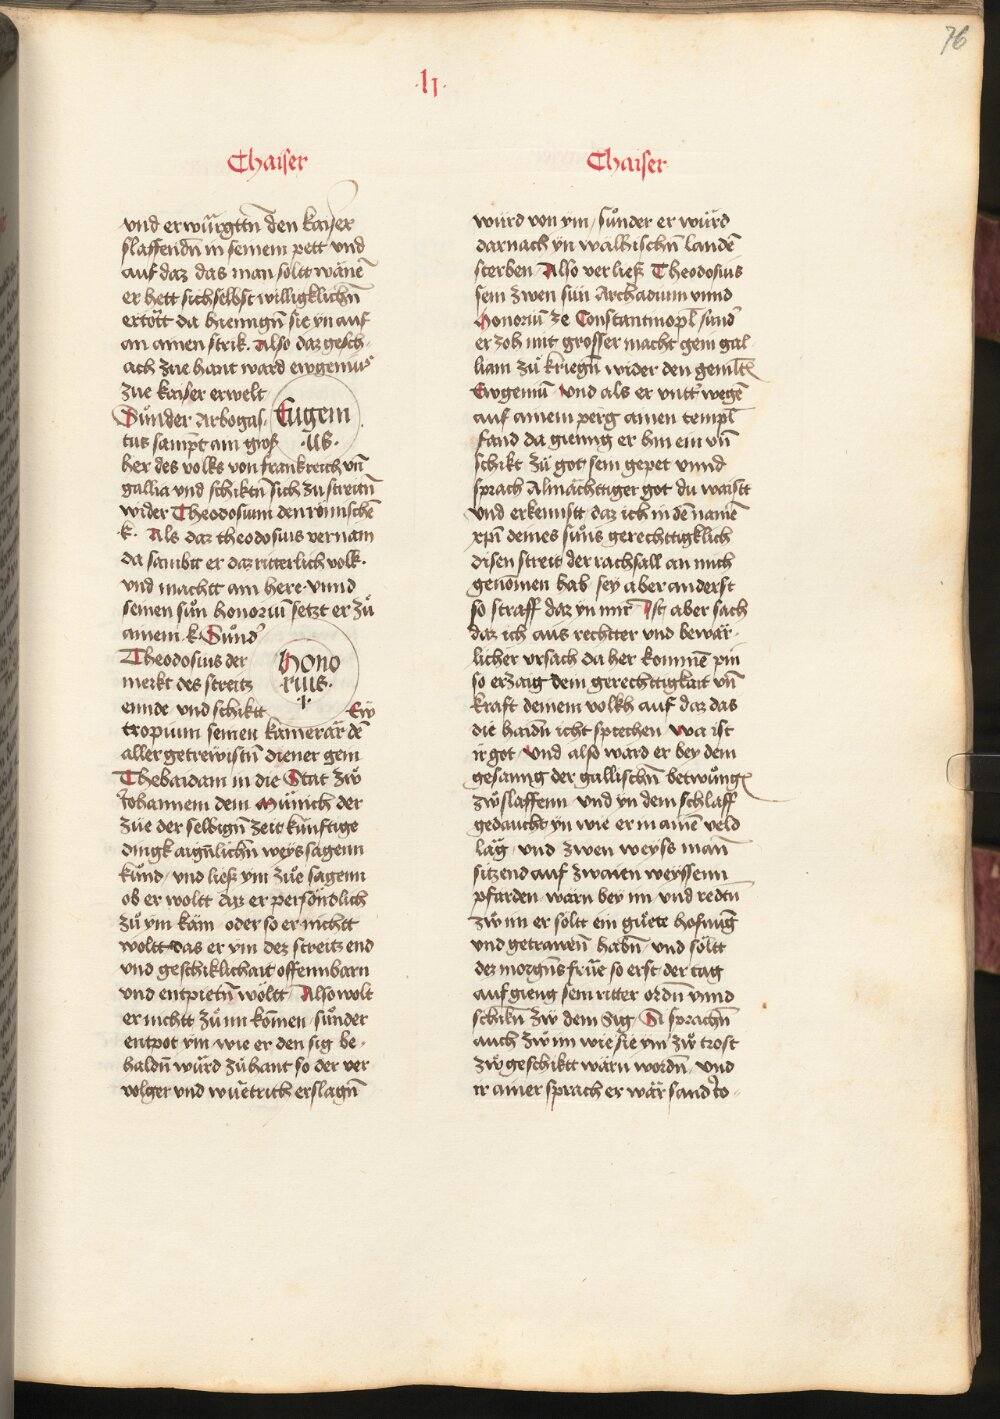 76
·lj·
Chaiser
und erwürgttn̄ den kayser
slaffendn̄ in seinem pett und
auf daz das man soltt wänē
er hett sich selbst willigklichn̄
ertött da hienngn̄ sie yn auf
an ainen strik. Also daz gesch-
ach zue hant ward ewgenius
zue kaiser erwelt
Sunder Arbogas-
tus sampt ain groß
Eugeni
·us·
her des volks von frankreich vn̄
gallia und schiktn̄ sich zu streitn̄
wider Theodosium den römischē
k. Als daz theodosius vernam
da sambtt er daz ritterlich volk.
und machtt ain here vnnd
seinen sůn honoriū setzt er zů
ainem .k. Sůnd'
Theodosius der
merkt des streitz
ennde und schiktt
Hono
rius.
·I·
Ew
tropium seinen kamerär dē
aller getrewistn̄ diener gein
Thebaidam in die Stat zw
Johannem dem Münich der
züe der selbign̄ zeit kunftige
dingk aignlichn̄ weyssagenn
kůnd und ließ ym züe sagenn
ob er woltt daz er persöndlich
zů ym käm oder so er nichtt
woltt das er ym dez streitz end
und geschiklichait offennbarn
und entpietn̄ wöltt Also wolt
er nichtt zů im kōmen sůnder
entpot ym wie er den sig be-
haldn̄ würd zů hant so der ver
volger und wuetrich erslagn̄
Chaiser
wurd von ym / sůnder er würd
darnach yn walhischn̄ landē
sterben Also verließ Theodosius
sein zwen sün Archadium vnnd
honoriū ze Constantinopl sund'
er zoh mit grosser macht gein gal-
liam zů kriegn̄ wider den genāten
Ewgeniū Und als er vntt' wegē
auf ainem perg ainen templ̄
fand da gienng er hin ein vn̄
schikt zů got sein gepet vnnd
sprach Almächttiger got du waistt
und erkennstt daz ich in dē namē
xp̄i deines sůns gerechttigklich
disen streit der rachsall an mich
genōmen hab sey aber anderst
so straff daz yn mir Ist aber sach
daz ich aus rechtter und bewär-
licher ursach da her kommē pin
so erzaig dein gerechttigkait vn̄
kraft deinem volkh auf daz das
die haidn̄ icht sprechen wa ist
ir got Und also ward er bey dem
gesanng der gallischn̄ betwůng
zw slaffenn und yn dem schlaff
gedaucht yn wie er in ainē veld
läg und zwen weyss man̄
sitzend auf zwaien weyssenn
pfärden wärn bey im und redtn̄
zw im er solt ein guete hofnūg
und getrawen̄ habn̄ und söltt
dez morgn̄s früe so erst der tag
aufgieng sein ritter ordn̄ vnnd
schikn̄ zw dem Sig Si sprachn̄
auch zw im wie sie ym zw trost
zw geschiktt wärn wordn̄ und
ir ainer sprach er wär sand Jo-